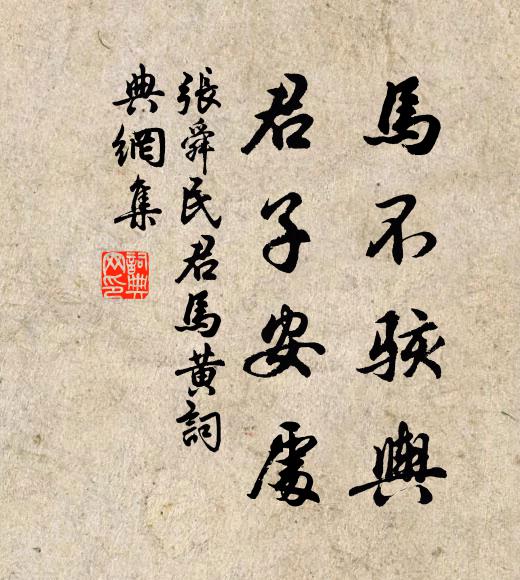 馬不駭輿
君子安處
張舜民君馬黃詞
典網集
詞典網印